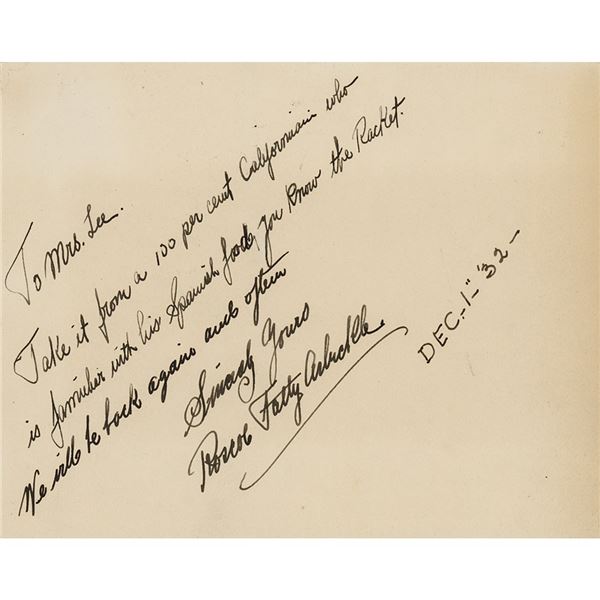 To Mrs. Lee.
Take it from a 100 per cent Californian who
is familier with his Spanish food, you know the Racket.
We will be back again and often
Sincerly Yours
Roscoe Fatty Arbuckle
DEC.-1-"'32-